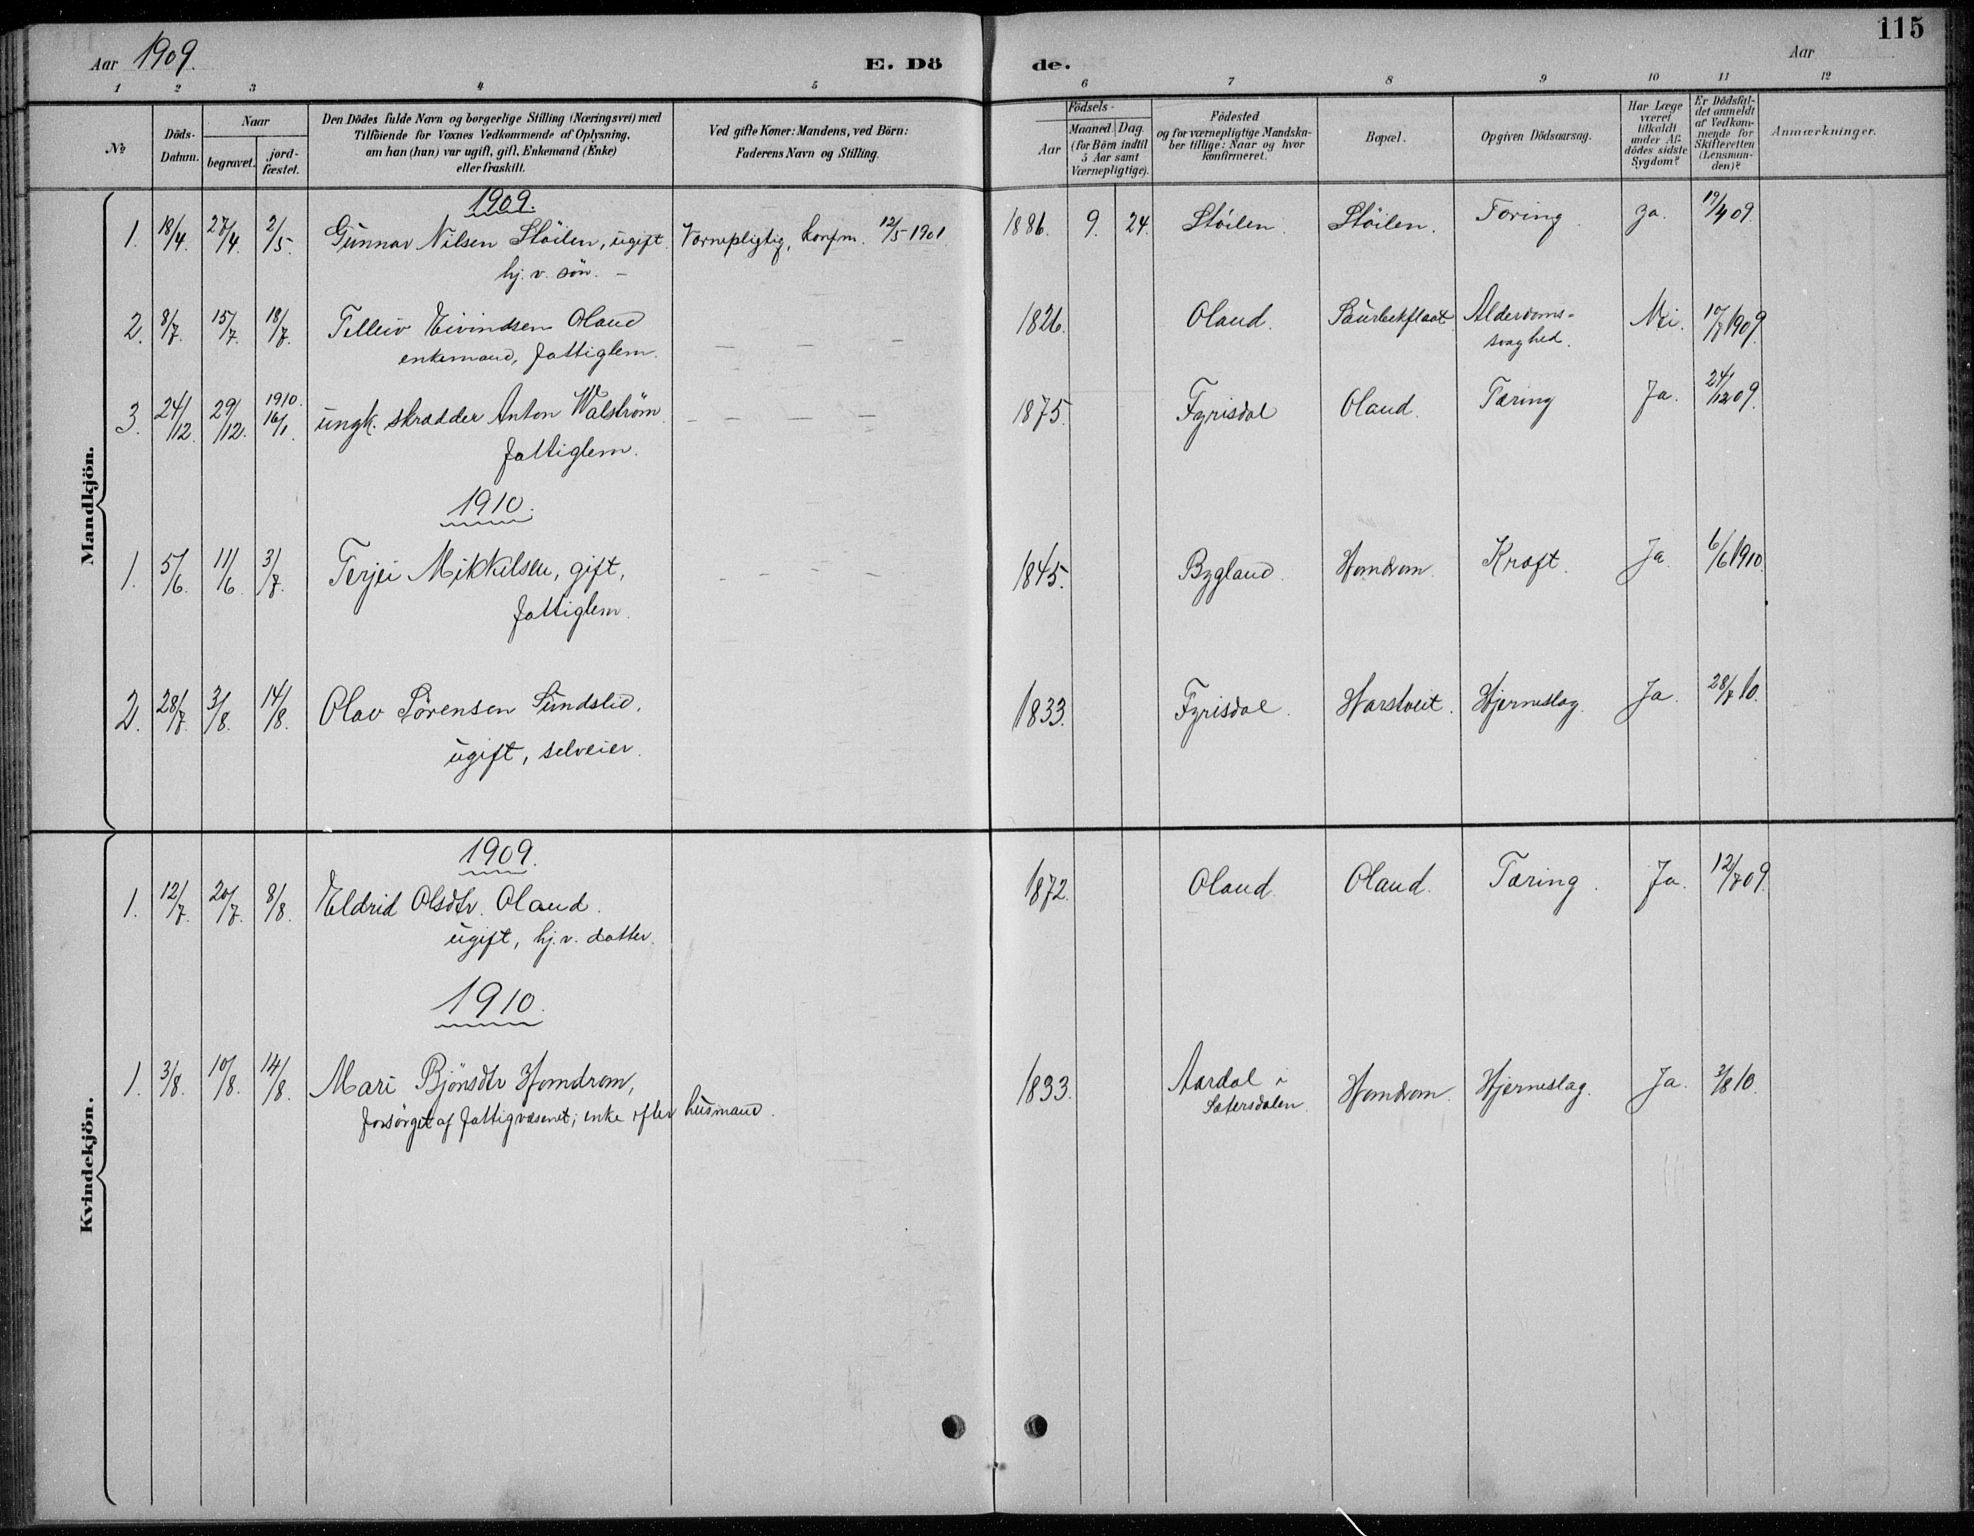 115
Aar 1909. E. Dö de. Aar
1 2 3 4 5 6 7 8 9 10 11 12
No
Döds-Datum.
Naar
begravet.
jord-fæstet.
Den Dödes fulde Navn og borgerlige Stilling (Næringsvei) med
Tilföiende for Voxnes Vedkommende af Oplysning,
om han (hun) var ugift, gift, Enkemand (Enke)
eller fraskilt.
Ved gifte Koner: Mandens, ved Börn:
Faderens Navn og Stilling.
Födsels-
Aar
Maaned Dag
(for Börn indtil
5 Aar samt
Værnepligtige).
Födested
og for værnepligtige Mandska-
ber tillige: Naar og hvor
konfirmeret.
Bopæl.
Opgiven Dödsaarsag.
Har Læge
været
tilkaldt
under Af-
dödes sidste
Sygdom?
Er Dödsfal-
det anmeldt
af Vedkom-
mende for
Skifteretten
(Lensman-
den)?
Anmærkninger.
Mandkjön.
1909.
1. 18/4. 27/4 2/5. Gunnar Nilsen Stöilen, ugift. Værnepligtig, konfm. 12/5 1901. 1886. 9. 24. Stöilen. Stöilen. Tæring. Ja. 19/4 09.
hj. v. sön. –
2. 8/7. 15/7. 18/7. Telleiv Eivindsen Oland – – – 1826. Oland. Saurbekflaat Alderdoms= Nei. 10/7 1909
enkemand, fattiglem. svaghed.
3. 24/12. 29/12. 1910. 16/1 ungk. skrædder Anton Walström – – – – 1875. Fyrisdal Oland. Tæring Ja. 24/12 09.
fattiglem.
1910.
1. 5/6. 11/6. 3/7. Terjei Mikkelsen, gift, – – – – 1845. Bygland Homdrom. Kræft. Ja. 6/6 1910.
fattiglem.
2. 28/7. 3/8. 14/8. Olav Sörensen Sundslid, 1833. Fyrisdal. Harstveit. Hjerneslag. Ja. 28/7 10.
ugift, selveier.
Kvindekjön.
1909.
1. 12/7. 20/7. 8/8. Eldrid Olsdtr. Oland. 1872. Oland. Oland. Tæring. Ja. 12/7 09.
ugift, hj. v. datter.
1910.
1. 3/8. 10/8. 14/8. Mari Bjönsdtr Homdrom, 1833. Aardal i Homdrom. Hjerneslag. Ja. 3/8 10.
forsörget af fattigvæsenet; enke efter husmand. Sætersdalen.